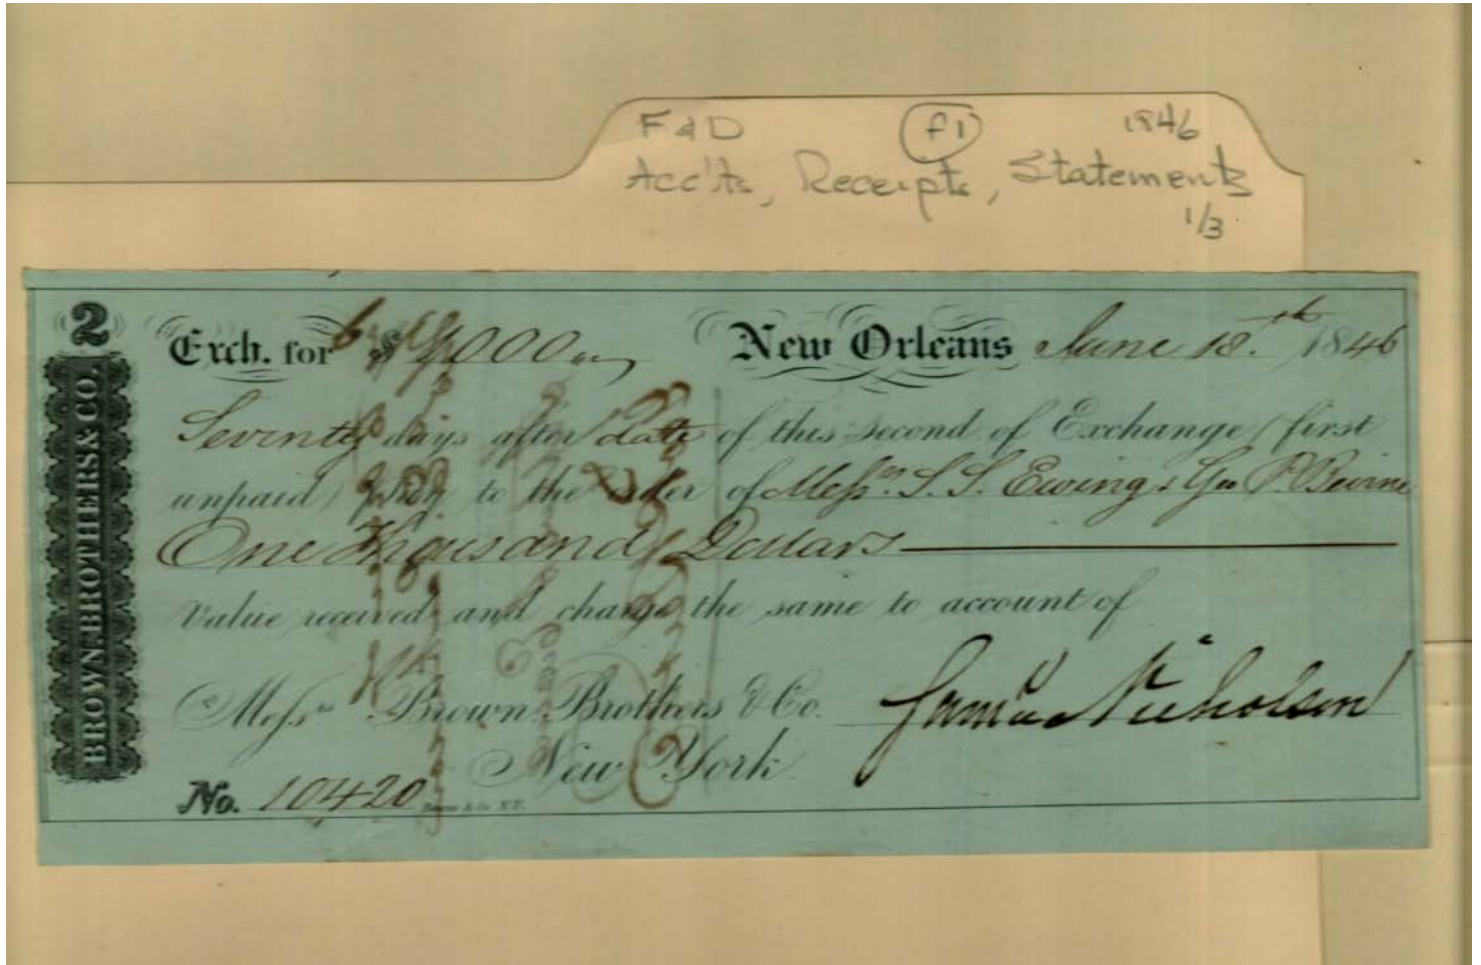 F & D f1 1846
Acc'ts, Receipts, Statements
1/3
2
BROWN, BROTHERS & CO.
Exch. for $ 1000 New Orleans June 18th 1846
Seventy days after date of this second of Exchange (first
unpaid) pay to the order of Messrs. S. S. Ewing & Geo P.
One Thousand Dollars
Value received and charge the same to account of
Messrs. Brown Brothers & Co. Saml Nicholson
New York
No. 10420